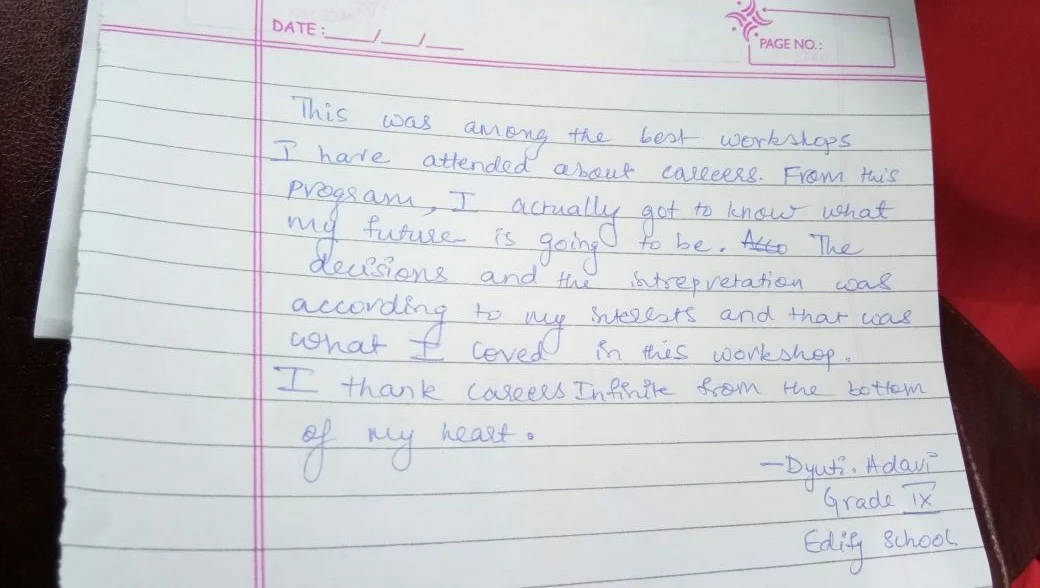 DATE: __/__/__
PAGE NO.:
This was among the best workshops
I have attended about careers. From this
program, I actually got to know what
my future is going to be. The
decisions and the intrepretation was
according to my interests and that was
what I loved in this workshop.
I thank careers Infinite from the bottom
of my heart.
—Dyuti. Adavi
Grade IX
Edify School